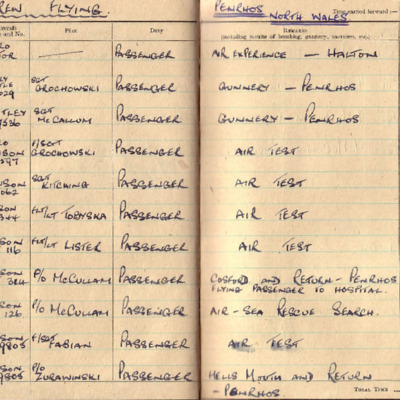 REN FLYING.
PENRHOS
NORTH WALES
Time carried forward :—
Aircraft
Pilot
Duty
Remarks
and No.
(including results of bombing, gunnery, exercises, etc.)
PASSENGER
AIR EXPERIENCE — HALTON
SGT
GROCHOWSKI
PASSENGER
GUNNERY — PENRHOS
SGT
McCALLUM
PASSENGER
GUNNERY — PENRHOS
F/SGT
GROCHOWSKI
PASSENGER
AIR TEST
SGT
KITCHING
PASSENGER
AIR TEST
344
FLT/LT TOBYSKA
PASSENGER
AIR TEST
SON
116
FLT/LT LISTER
PASSENGER
AIR TEST
SON
324
P/O McCULLAM
PASSENGER
COSFORD AND RETURN - PENRHOS
FLYING PASSENGER TO HOSPITAL.
SON
126
P/O McCULLAM
PASSENGER
AIR-SEA RESCUE SEARCH.
SON
9805
F/SGT
FABIAN
PASSENGER
AIR TEST
SON
9805
P/O
ZURAWINSKI
PASSENGER
HELLS MOUTH AND RETURN
- PENRHOS
TOTAL TIME